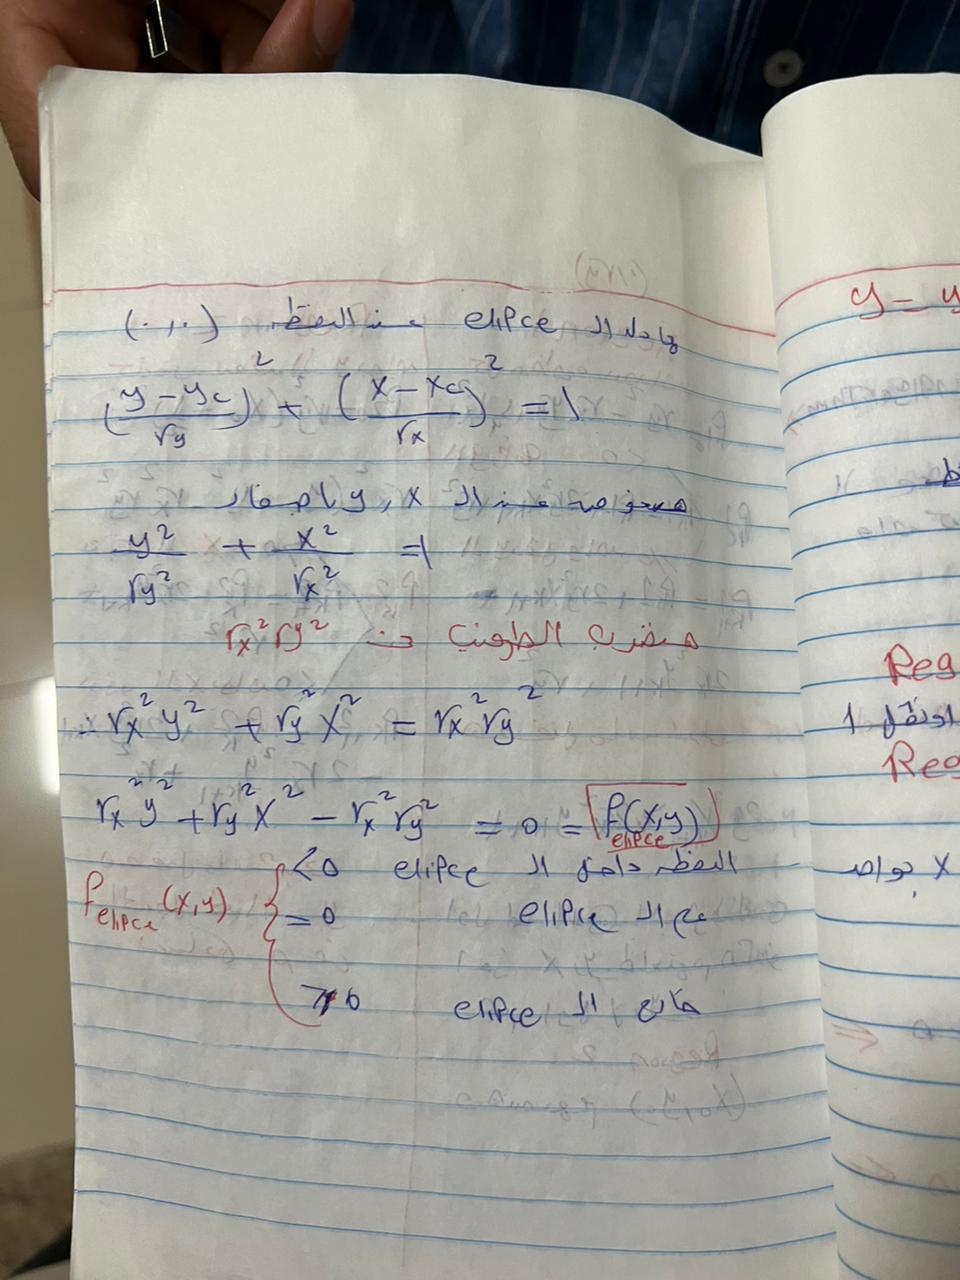 معادلة الـ elipce عند النقطة (٠,٠)
(y - yc / ry)² + (x - xc / rx)² = 1
هنعوض عند الـ x, y باصفار
y²/ry² + x²/rx² = 1
هنضرب الطرفين rx² ry²
rx² y² + ry² x² = rx² ry²
rx² y² + ry² x² - rx² ry² = 0 = f elipce (x,y)
f elipce (x,y) { < 0 النقطة داخل الـ elipce
= 0 على الـ elipce
> 0 خارج الـ elipce
y - y
Reg
1
Reg
x